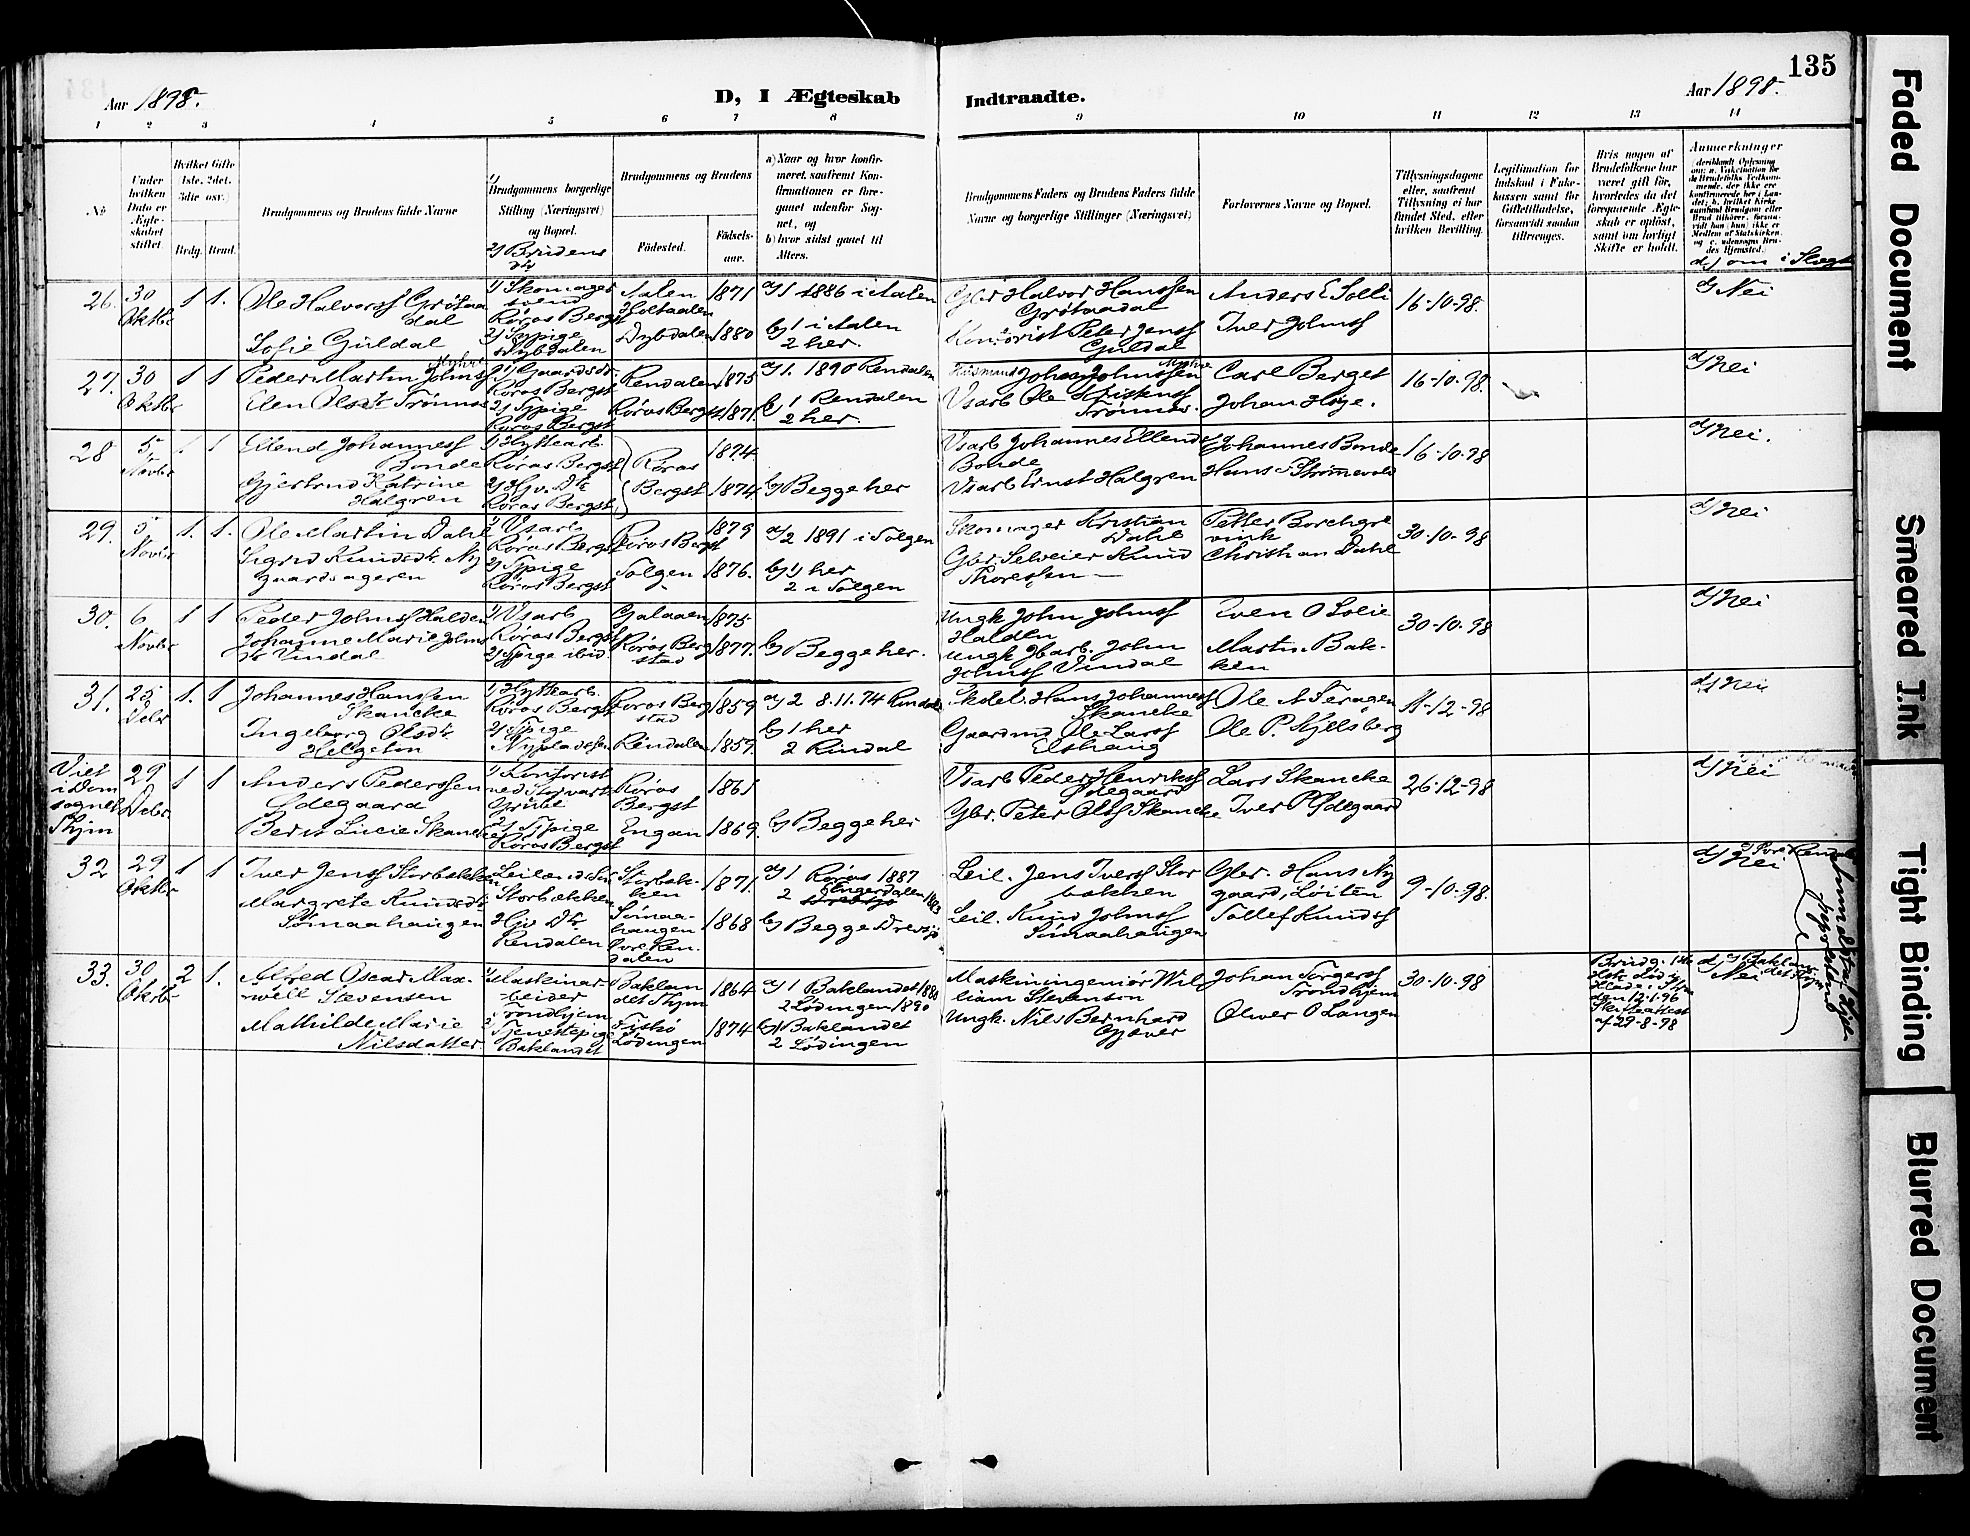 135
Aar 1898.
D, I Ægteskab
Indtraadte.
Aar 1898.
1 2 3 4 5 6 7 8 9 10 11 12 13 14
No
Under hvilken Dato er Ægteskabet stiftet.
Hvilket Gifte (1ste, 2det, 3die osv.)
Brdg. Brud.
Brudgommens og Brudens fulde Navne
1) Brudgommens borgerlige Stilling (Næringsvei) og Bopæl.
2) Brudens
Brudgommens og Brudens
Födested.
Födsels-aar.
a) Naar og hvor konfirmeret, saafremt Konfirmationen er foregaaet udenfor Sognet, og
b) hvor sidst gaaet til Alters.
Brudgommens Faders og Brudens Faders fulde Navne og borgerlige Stillinger (Næringsvei)
Forlovernes Navne og Bopæl.
Tillysningsdagene eller, saafremt Tillysning ei har fundet Sted, efter hvilken Bevilling.
Legitimation for Indskud i Enkekassen samt for Giftetilladelse, forsaavidt saadan tiltrænges.
Hvis nogen af Brudefolkene har været gift før, hvorledes da det foregaaende Ægteskab er opløst, samt om lovligt Skifte er holdt.
Anmerkninger
d) om i Slægt
26.
30 Oktbr
1 1.
Ole Halvorss Grötaadal
Sofie Guldal
1) Skomagersvend
Röros Bergst
2) Typige
Dybdalen
Aalen Holtaalen
Dybdalen
1871
1880
a) 1 1886 i Aalen
b) 1 i Aalen
2 her.
Gbr Halvor Hanssen
Grötaadal
Kontorist Peter Jenss
Guldal
Anders E Solli
Iver Johnss
16-10-98.
d) Nei
27.
30 Oktbr
1 1
Peder Martin Johnss
Elen Olsdt Trönnes
Röros Bergst
2) Typige
Röros Bergst
Rendalen
Röros Bergst
1875
1871
a) 1. 1890 Rendalen
b) 1 Rendalen
2 her.
Husmand Johan Johnssen
Vsarb Ole
Trönnes.
Carl Berget
Johan Höye.
16-10-98.
d) Nei
28
5 Novbr
1 1
Ellend Johanness
Bonde
Gjertrud Katrine
Halgren
1) Hyttearb.
Röros Bergst
2) Hjv. Dtr
Röros Bergst
Röros
Bergst
1874
1874
b) Begge her
Vsarb Johannes Ellends
Bonde
Vsarb Ernst Halgren
Johannes Bonde
Hans Strömevold
16-10-98
d) Nei.
29.
5 Novbr
1. 1.
Ole Martin Dahl
Sigrid Knudsdt. Ny
gaardsageren
1) Vsarb
Röros Bergst
2) Typige
Röros Bergst
Röros Bergst
Tolgen
1879
1876.
a) 2 1891 i Tolgen
b) 1 her
2 i Tolgen
Skomager Kristian
Dahl
Gbr. Selveier Knud
Thoressen
Petter Borchgre
vink
Christian Dahl
30-10-98
d) Nei
30.
6 Novbr
1 1
Peder Johnss Halden
Johanne Marie Johns
dt Vindal
1) Vsarb
Röros Bergst
2) Typige ibid.
Galaaen
Röros Berg
stad
1875
1877.
b) Begge her.
Ungk John Johnss
Halden
Ungk Harb. John
Johnss Vindal
Even O Solie
Martin Bak-
ken
30-10-98
d) Nei
31.
25 Debr
1. 1
Johannes Hanssen
Skancke
Ingeborg Olsdt.
Helgetun
1) Hyttearb.
Röros Bergst
2) Tpige
Nypladsen
Röros Berg
stad
Rindalen
1859
1859.
a) 2 8.11.74 Rindal
b) 1 her
2 Rindal
Skdel. Hans Johanness
Skancke
Gaardmd Ole Larss
Elshaug
Ole A Feragen
Ole P. Kjelsberg
11-12-98
d) Nei
Viet
i Dom
sognet
Thjm
29 Debr.
1 1
Anders Pederssen
Ödegaard
Berit Lucie Skancke
1) Kontorist
ved Storvarts
Grube
2) Tpige
Röros Bergst
Röros
Bergst
Engan
1861
1869.
b) Begge her
Vsarb Peder Henrikss
Ödegaard
Gbr. Peter Olss Skancke
Lars Skancke
Iver P Ödegaard
26-12-98
d) Nei
32
29 Oktbr
1 1
Iver Jenss Storbækken
Margrete Knudsdt.
Sömaahaugen
Leilænding
Storbækken
Hjv Dtr.
Rendalen
Storbæk-
ken
Sömaa-
haugen
Övre Ren-
dalen
1871.
1868
a) 1 Röros 1887
2 Engerdalen 1883
b) Begge Drevsjö
Leil. Jens Iverss Stor
bækken
Leil. Knud Johnss
Sömaahaugen
Gbr. Hans Ny
gaard, Löiten
Tollef Knudss
9-10-98.
d) Nei
33.
30 Oktbr
2 1.
Alfred Oscar Max-
well Stevensen
Mathilde Marie
Nilsdatter
1) Maskinar-
beider
Trondhjem
2) Tjenestepige
Baklandet
Baklan
det Thjm
Fiskö
Lödingen
1864
1874
a) 1 Baklandet 1880
2 Lödingen 1890
b) 1 Baklandet
2 Lödingen
Maskiningeniör Wil
liam Stevenson
Ungk. Nils Bernhard
Gjöver
Johan Torgerss
Trondhjem
Oliver O Langen
30-10-98
Brudg. 1ste
Hstr död i
Hlade i Thjm
den 12-1-96
Skifteattest
af 29-8-98
d) Nei
Faded Document
Smeared Ink
Tight Binding
Blurred Document